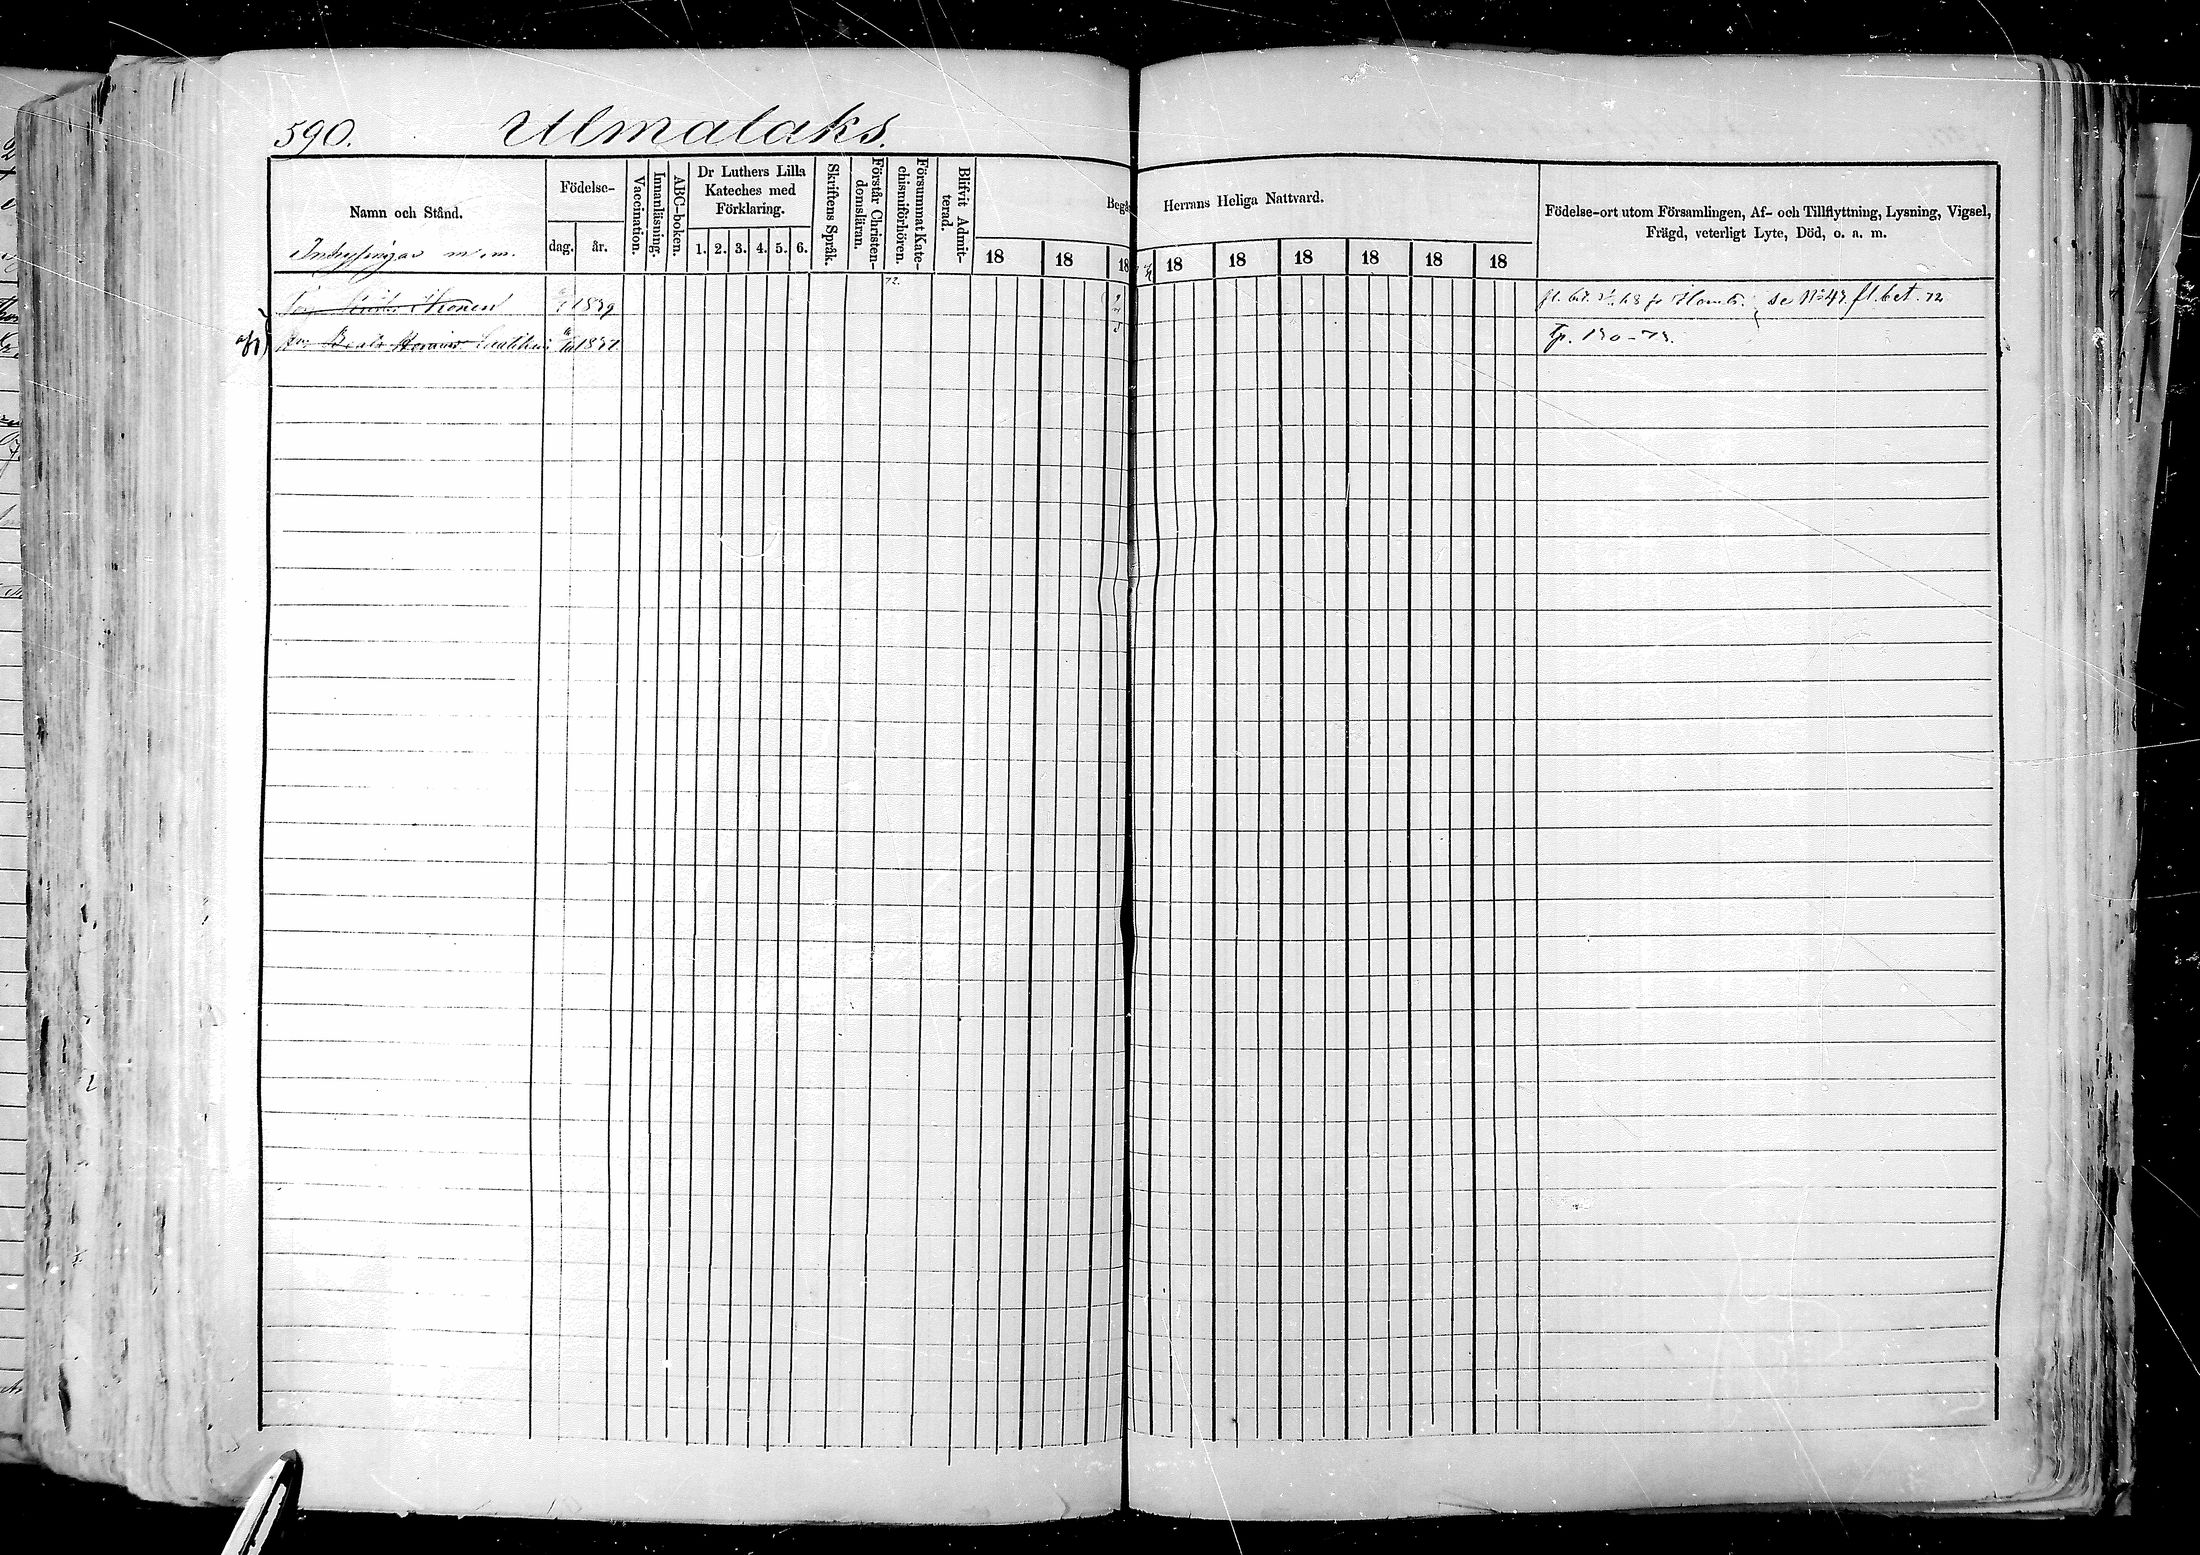 590. Ulmalaks.
Namn och Stånd.
Inhysingar m. m.
Födelse-
dag. år.
Vaccination.
Innanläsning.
ABC-boken.
Dr Luthers Lilla
Kateches med
Förklaring.
1. 2. 3. 4. 5. 6.
Skriftens Språk.
Förstår Christen-
domsläran.
Försummat Kate-
chismiförhören.
Blifvit Admit-
terad.
Begå Herrans Heliga Nattvard.
18 18 18 18 18 18 18 18 18
Födelse-ort utom Församlingen, Af- och Tillflyttning, Lysning, Vigsel,
Frägd, veterligt Lyte, Död, o. a. m.
72.
1839 fl. bet. se No 47 fl. bet. 72
Beata